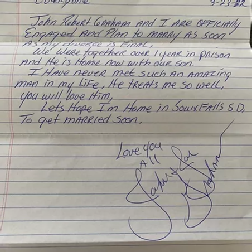 9-23-22
John Robert Graham and I are officially
Engaged And Plan to Marry as soon
as my divorce is final.
We were together over 1 year in prison
And He is Home now with our son.
I Have never met such an amazing
man in my life, He treats me so well,
you will love Him,
Lets Hope I'm Home in Soux Falls S.D.
To get married soon.
Love you
All